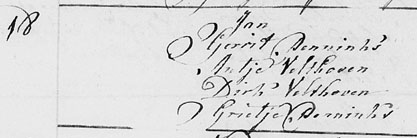 18 Jan
Gerrit Denninks
Antje Velthoven
Dirk Velthoven
Grietje Denninks